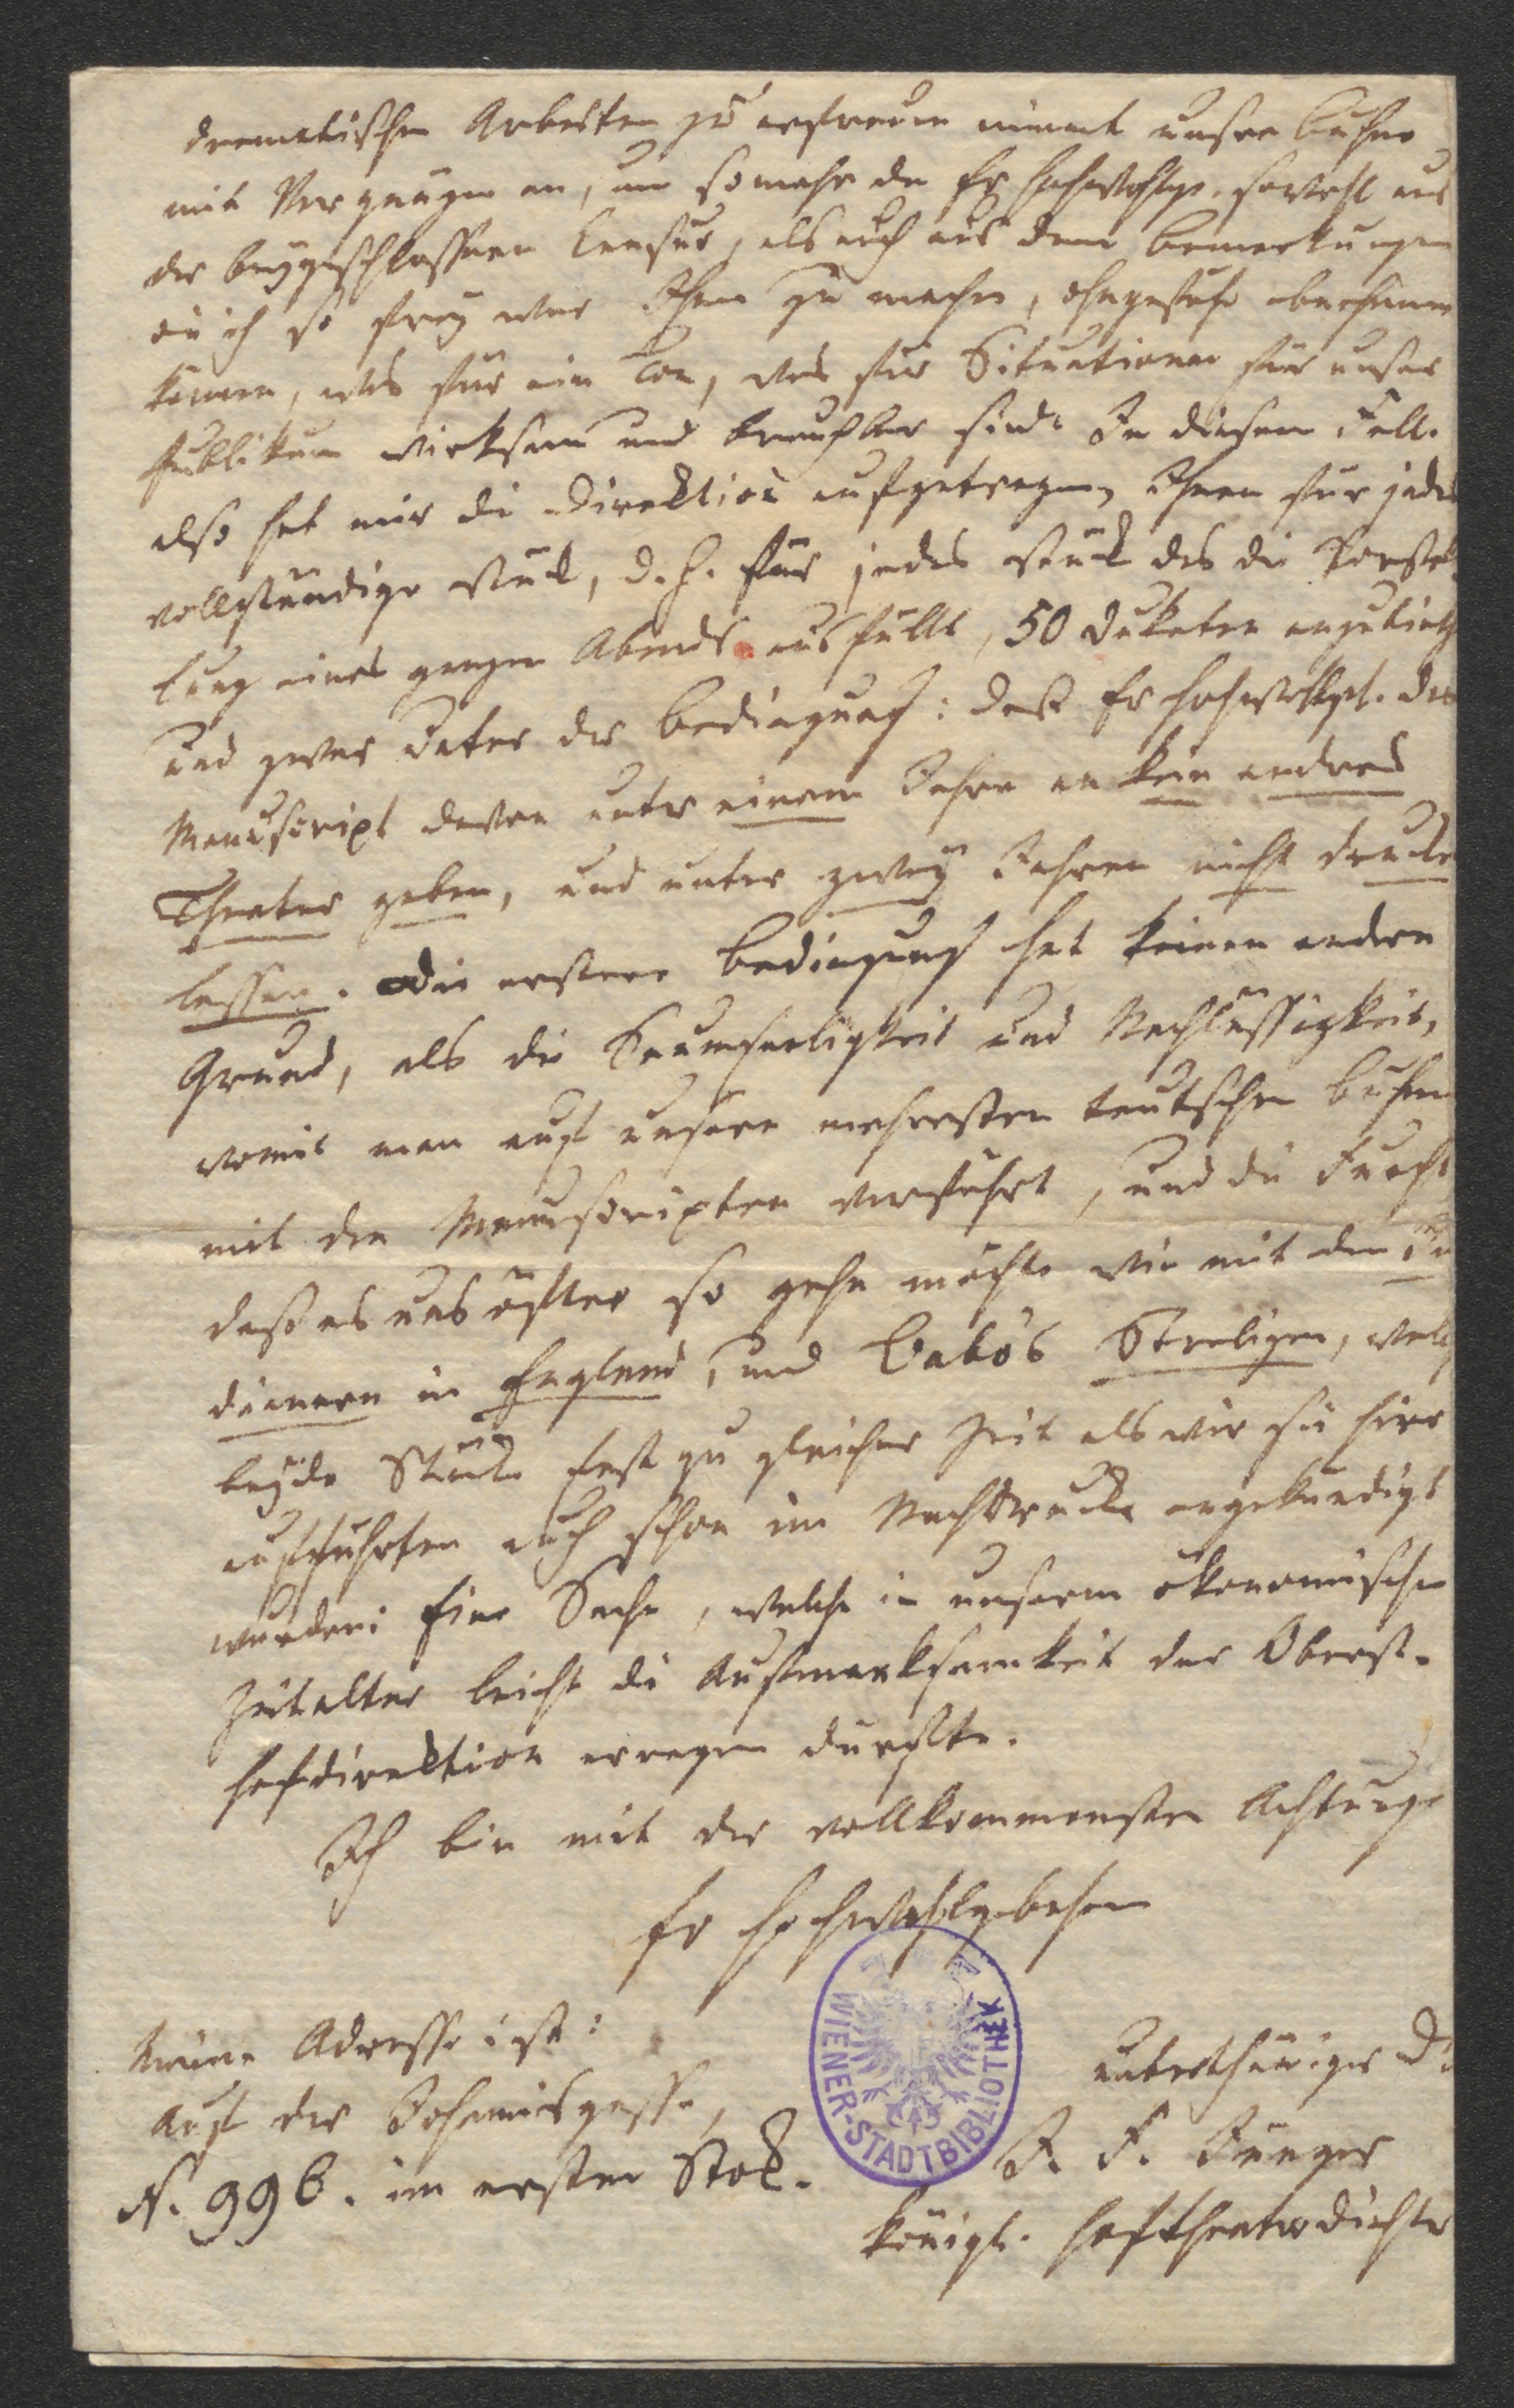 dramatischen Arbeiten zu erfreuen nimmt unsre Buhne
mit Vergnügen an, um somehr da Ew Hochwohlge. sowohl aus
der beygeschlossnen Censur, als auch aus denen Bemerkungen
die ich so frey war Ihnen zu machen, ohngefehr abnehmen
können, was für ein Ton, was für Situationen für unser
Publikum wirksam und brauchbar sind. In diesem Fall.
also hat mir die Direktion aufgetragen, Ihnen für jedes
vollständige Stück, d. h. für jedes Stück das die Vorstel
lung eines ganzen Abends ausfüllt, 50 Dukaten anzubieth
und zwar unter der Bedingung: daß Ew Hochwohlge. das
Manuscript davon unter einem Jahre an kein andres
Theater geben, und unter zwey Jahren nicht drucke
lassen. Die erstere Bedingung hat keinen andern
Grund, als die Saumseeligkeit und Nachlässigkeit,
womit man auf unsern mehresten teutschen Buhnen
mit den Manuscripten verfährt, und die Furcht
daß es uns öfter so gehn möchte wie mit den In
dianern in England, und Babos Strelizen, welch
beyde Stücke fast zu gleicher Zeit als wir sie hier
aufführten auch schon im Nachdrucke angekündigt
wurden: Eine Sache, welche in unserm ökonomischen
Zeitalter leicht die Aufmerksamkeit der Oberst-
hofdirektion erregen durfte.
Ich bin mit der vollkommensten Achtung
Ew Hochwohlgebohrn
Meine Adresse ist:
Auf der Johannisgasse,
N. 996. im ersten Stock.
unterthäniger Di
J. F. Jünger
Königl. Hoftheaterdichter
WIENER-STADTBIBLIOTHEK